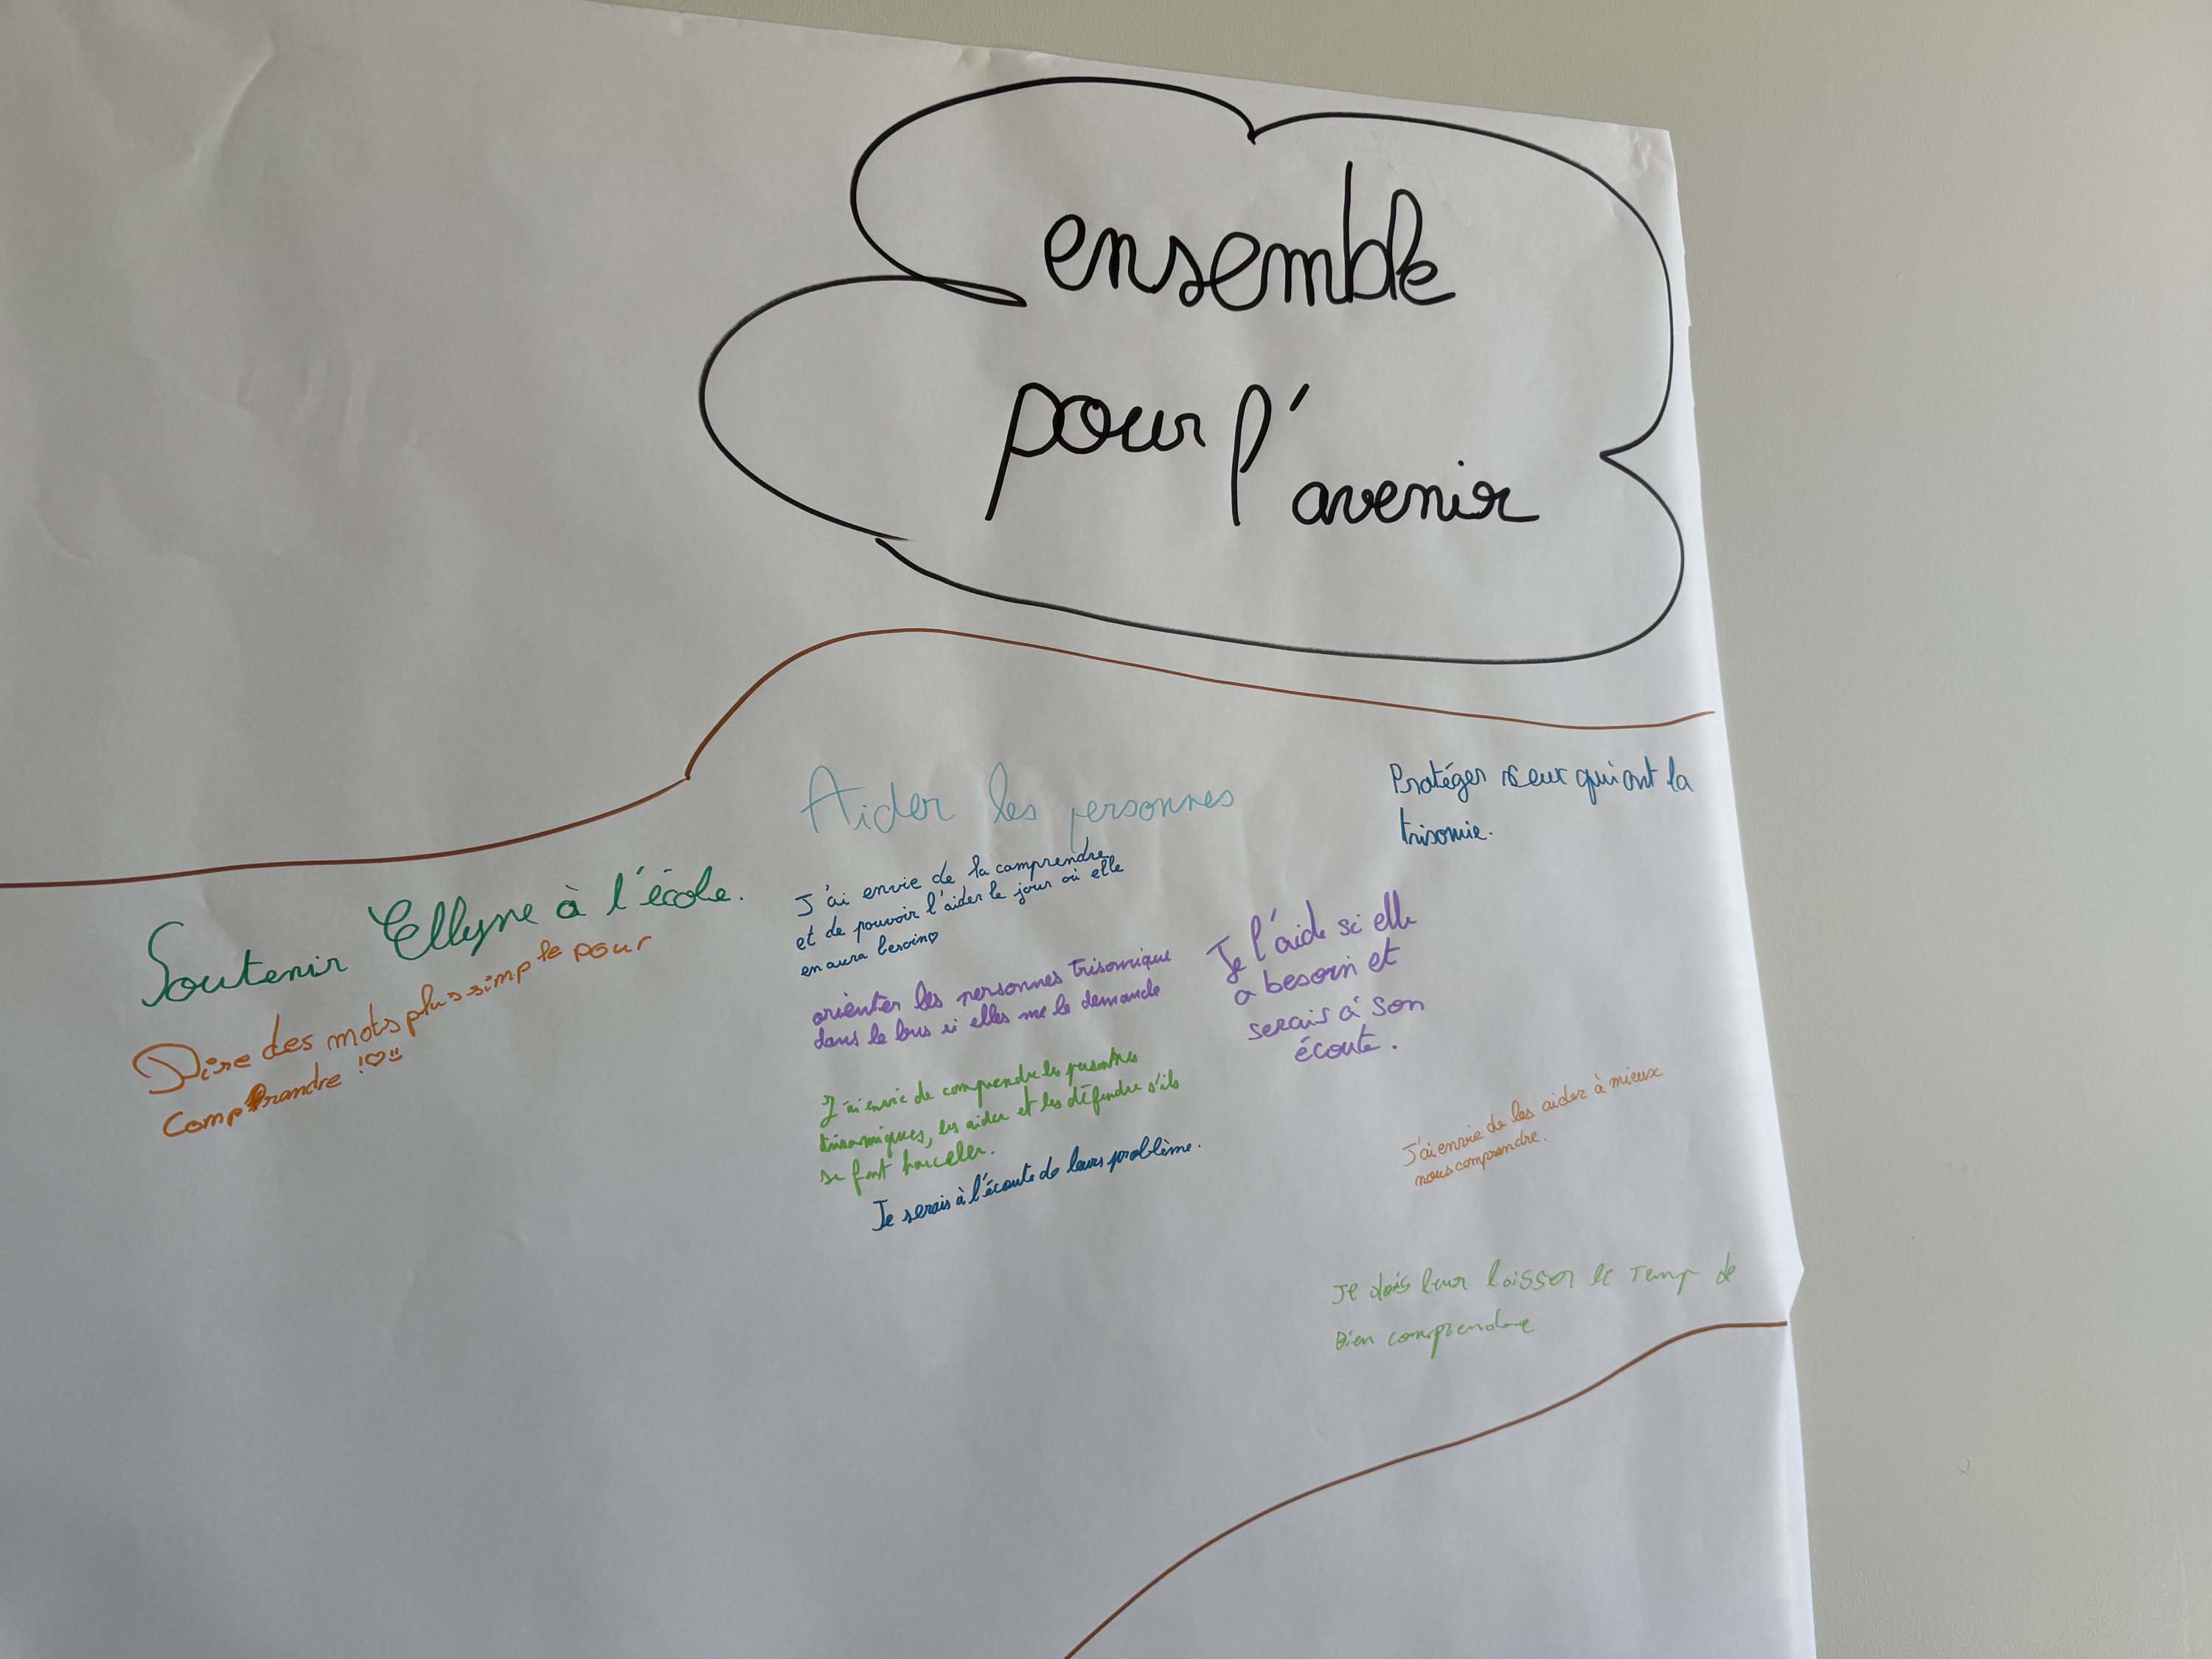 ensemble
pour l'
avenir
Soutenir Ellyne à l'école.
Dire des mots plus simple pour
Comprendre !♡
Aider les personnes
J'ai envie de la comprendre
et de pouvoir l'aider le jour où elle
en aura besoin♡
orienter les personnes trisomique
dans le bus si elles me le demande
J'ai envie de comprendre les personnes
trisomiques, les aider et les défendre s'ils
se font harceler.
Je serais à l'écoute de leurs problème.
Protéger ceux qui ont la
trisomie.
Je l'aide si elle
a besoin et
serais à son
écoute.
J'ai envie de les aider à mieux
nous comprendre.
Je dois leur laisser le temp de
bien comprendre